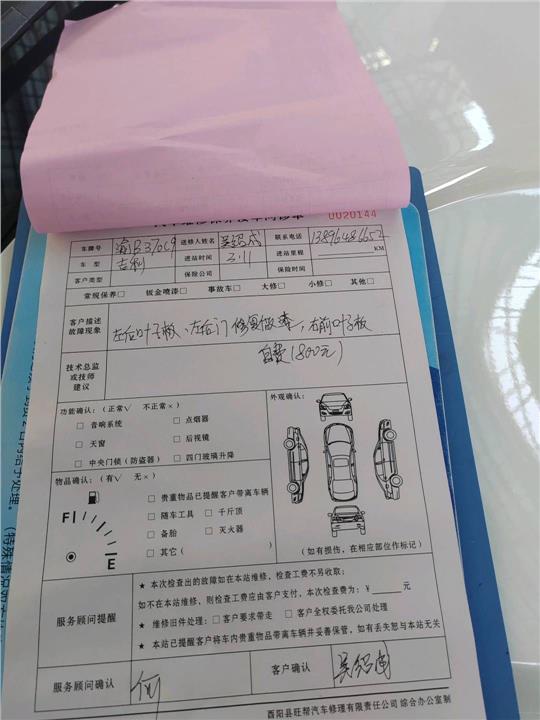 0020144
车牌号 渝B376C9 送修人姓名 联系电话 13896486652
车 型 吉利 进站时间 3.11 进站里程 KM
客户类型 保险公司 保险时间
常规保养□ 钣金喷漆□ 事故车□ 大修□ 小修□ 其他□
客户描述
故障现象
左后叶子板、左后门 修复做漆，右前叶子板
自费(800元)
技术总监
或技师
建议
功能确认：(正常√ 不正常×)
□ 音响系统 □ 点烟器
□ 天窗 □ 后视镜
□ 中央门锁（防盗器） □ 四门玻璃升降
外观确认：
物品确认：（有√ 无×）
F E
□ 贵重物品已提醒客户带离车辆
□ 随车工具 □ 千斤顶
□ 备胎 □ 灭火器
□ 其它(
（如有损伤，在相应部位作标记）
服务顾问提醒
★ 本次检查出的故障如在本站维修，检查工费不另收取；
如不在本站维修，则检查工费应由客户支付，本次检查费为：¥ 元
★ 维修旧件处理：□ 客户要求带走 □ 客户全权委托我公司处理
★ 本站已提醒客户将车内贵重物品带离车辆并妥善保管，如有丢失恕与本站无关
服务顾问确认 何 客户确认
酉阳县旺帮汽车修理有限责任公司 综合办公室制
处理。（特殊情况